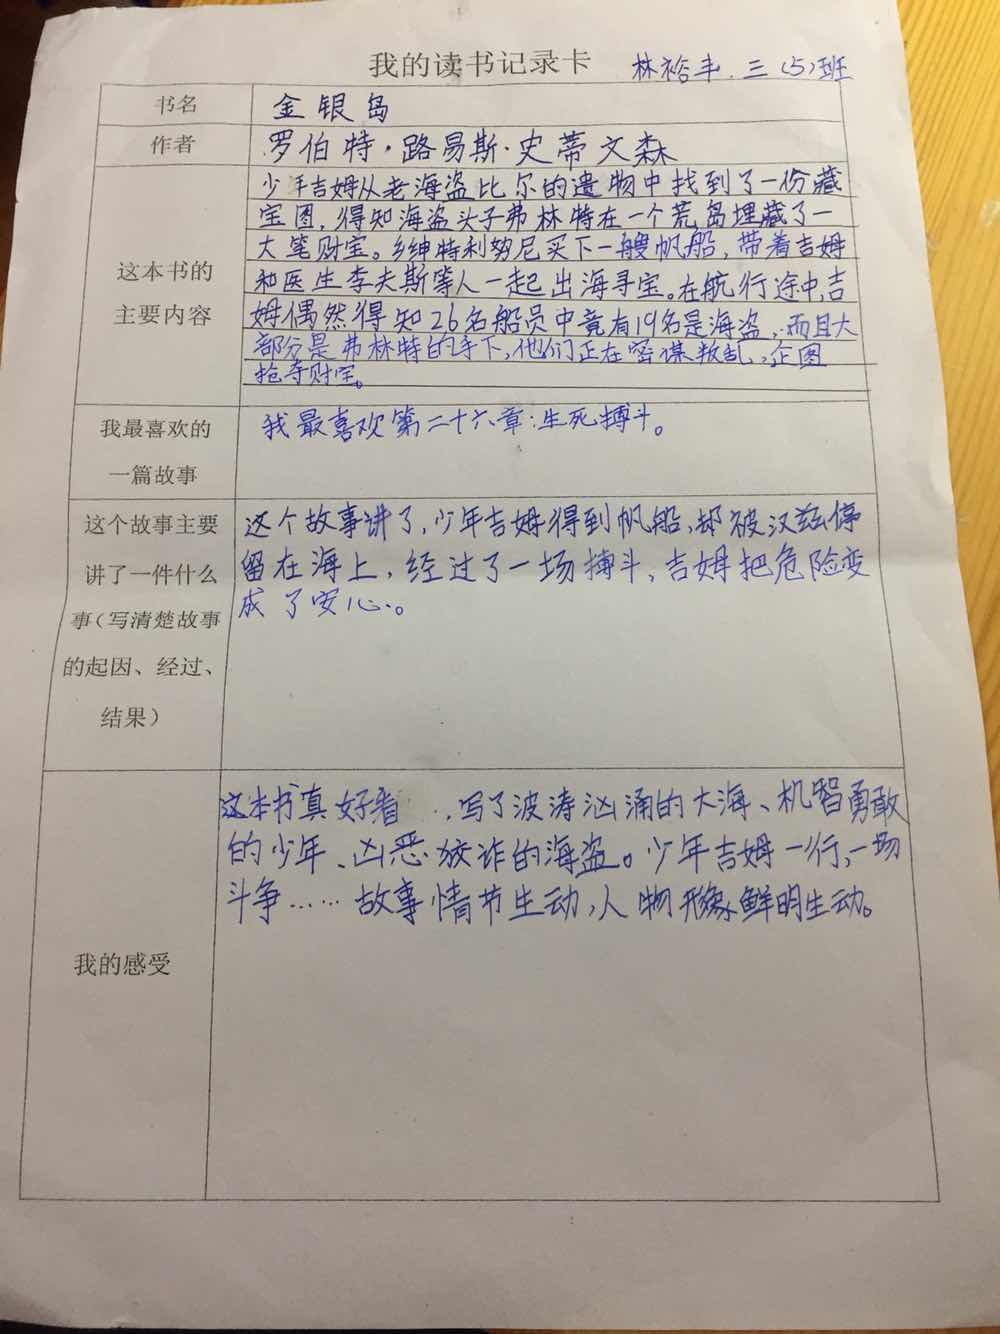 我的读书记录卡 林裕丰.三(5)班
书名 金银岛
作者 罗伯特·路易斯·史蒂文森
这本书的
主要内容
少年吉姆从老海盗比尔的遗物中找到了一份藏
宝图,得知海盗头子弗林特在一个荒岛埋藏了一
大笔财宝。乡绅特利劳尼买下一艘帆船,带着吉姆
和医生李夫斯等人一起出海寻宝。在航行途中,吉
姆偶然得知26名船员中竟有19名是海盗,而且大
部分是弗林特的手下,他们正在密谋叛乱,企图
抢夺财宝。
我最喜欢的
一篇故事
我最喜欢第二十六章:生死搏斗。
这个故事主要
讲了一件什么
事(写清楚故事
的起因、经过、
结果)
这个故事讲了,少年吉姆得到帆船,却被汉兹停
留在海上,经过了一场搏斗,吉姆把危险变
成了安心。
我的感受
这本书真好看,写了波涛汹涌的大海、机智勇敢
的少年、凶恶狡诈的海盗。少年吉姆一行,一场
斗争……故事情节生动,人物形象鲜明生动。